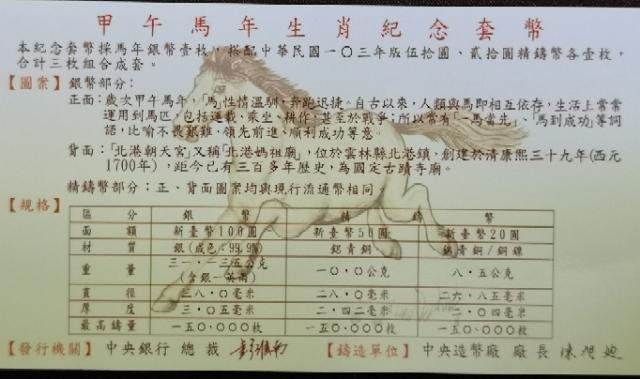 甲午馬年生肖紀念套幣
本紀念套幣採馬年銀幣壹枚，搭配中華民國一○三年版伍拾圓、貳拾圓精鑄幣各壹枚，
合計三枚組合成套。
【圖案】銀幣部分：
正面：歲次甲午馬年，「馬」性情溫馴，奔跑迅捷。自古以來，人類與馬即相互依存，生活上常常
運用到馬匹，包括運載、乘坐、耕作，甚至於戰爭；所以當有「一馬當先」、「馬到成功」等詞
語，比喻不畏艱難、領先前進、順利成功等意。
背面：「北港朝天宮」又稱「北港媽祖廟」，位於雲林縣北港鎮，創建於清康熙三十九年(西元
1700年)，距今已有三百多年歷史，為國定古蹟寺廟。
精鑄幣部分：正、背面圖案均與現行流通幣相同。
【規格】
區分 銀幣 精鑄幣
面額 新臺幣100圓 新臺幣50圓 新臺幣20圓
材質 銀(成色：99.9%) 鋁青銅 鋁青銅/銅鎳
重量 三一·一三五公克 一○·○公克 八·五公克
(含銀一英兩)
直徑 三八·○毫米 二八·○毫米 二六·八五毫米
厚度 三·○五毫米 二·四二毫米 二·○四毫米
最高鑄量 一五○,○○○枚 一五○,○○○枚 一五○,○○○枚
【發行機關】中央銀行 總裁 彭淮南 【鑄造單位】中央造幣廠 廠長